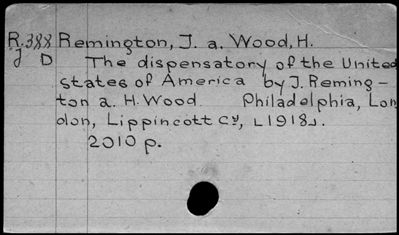 R.388 Remington, J. a. Wood, H.
J D The dispensatory of the United
states of America by J. Reming-
ton a. H. Wood. Philadelphia, Lon
don, Lippincott Cy, ⌊1918⌋.
2010 p.